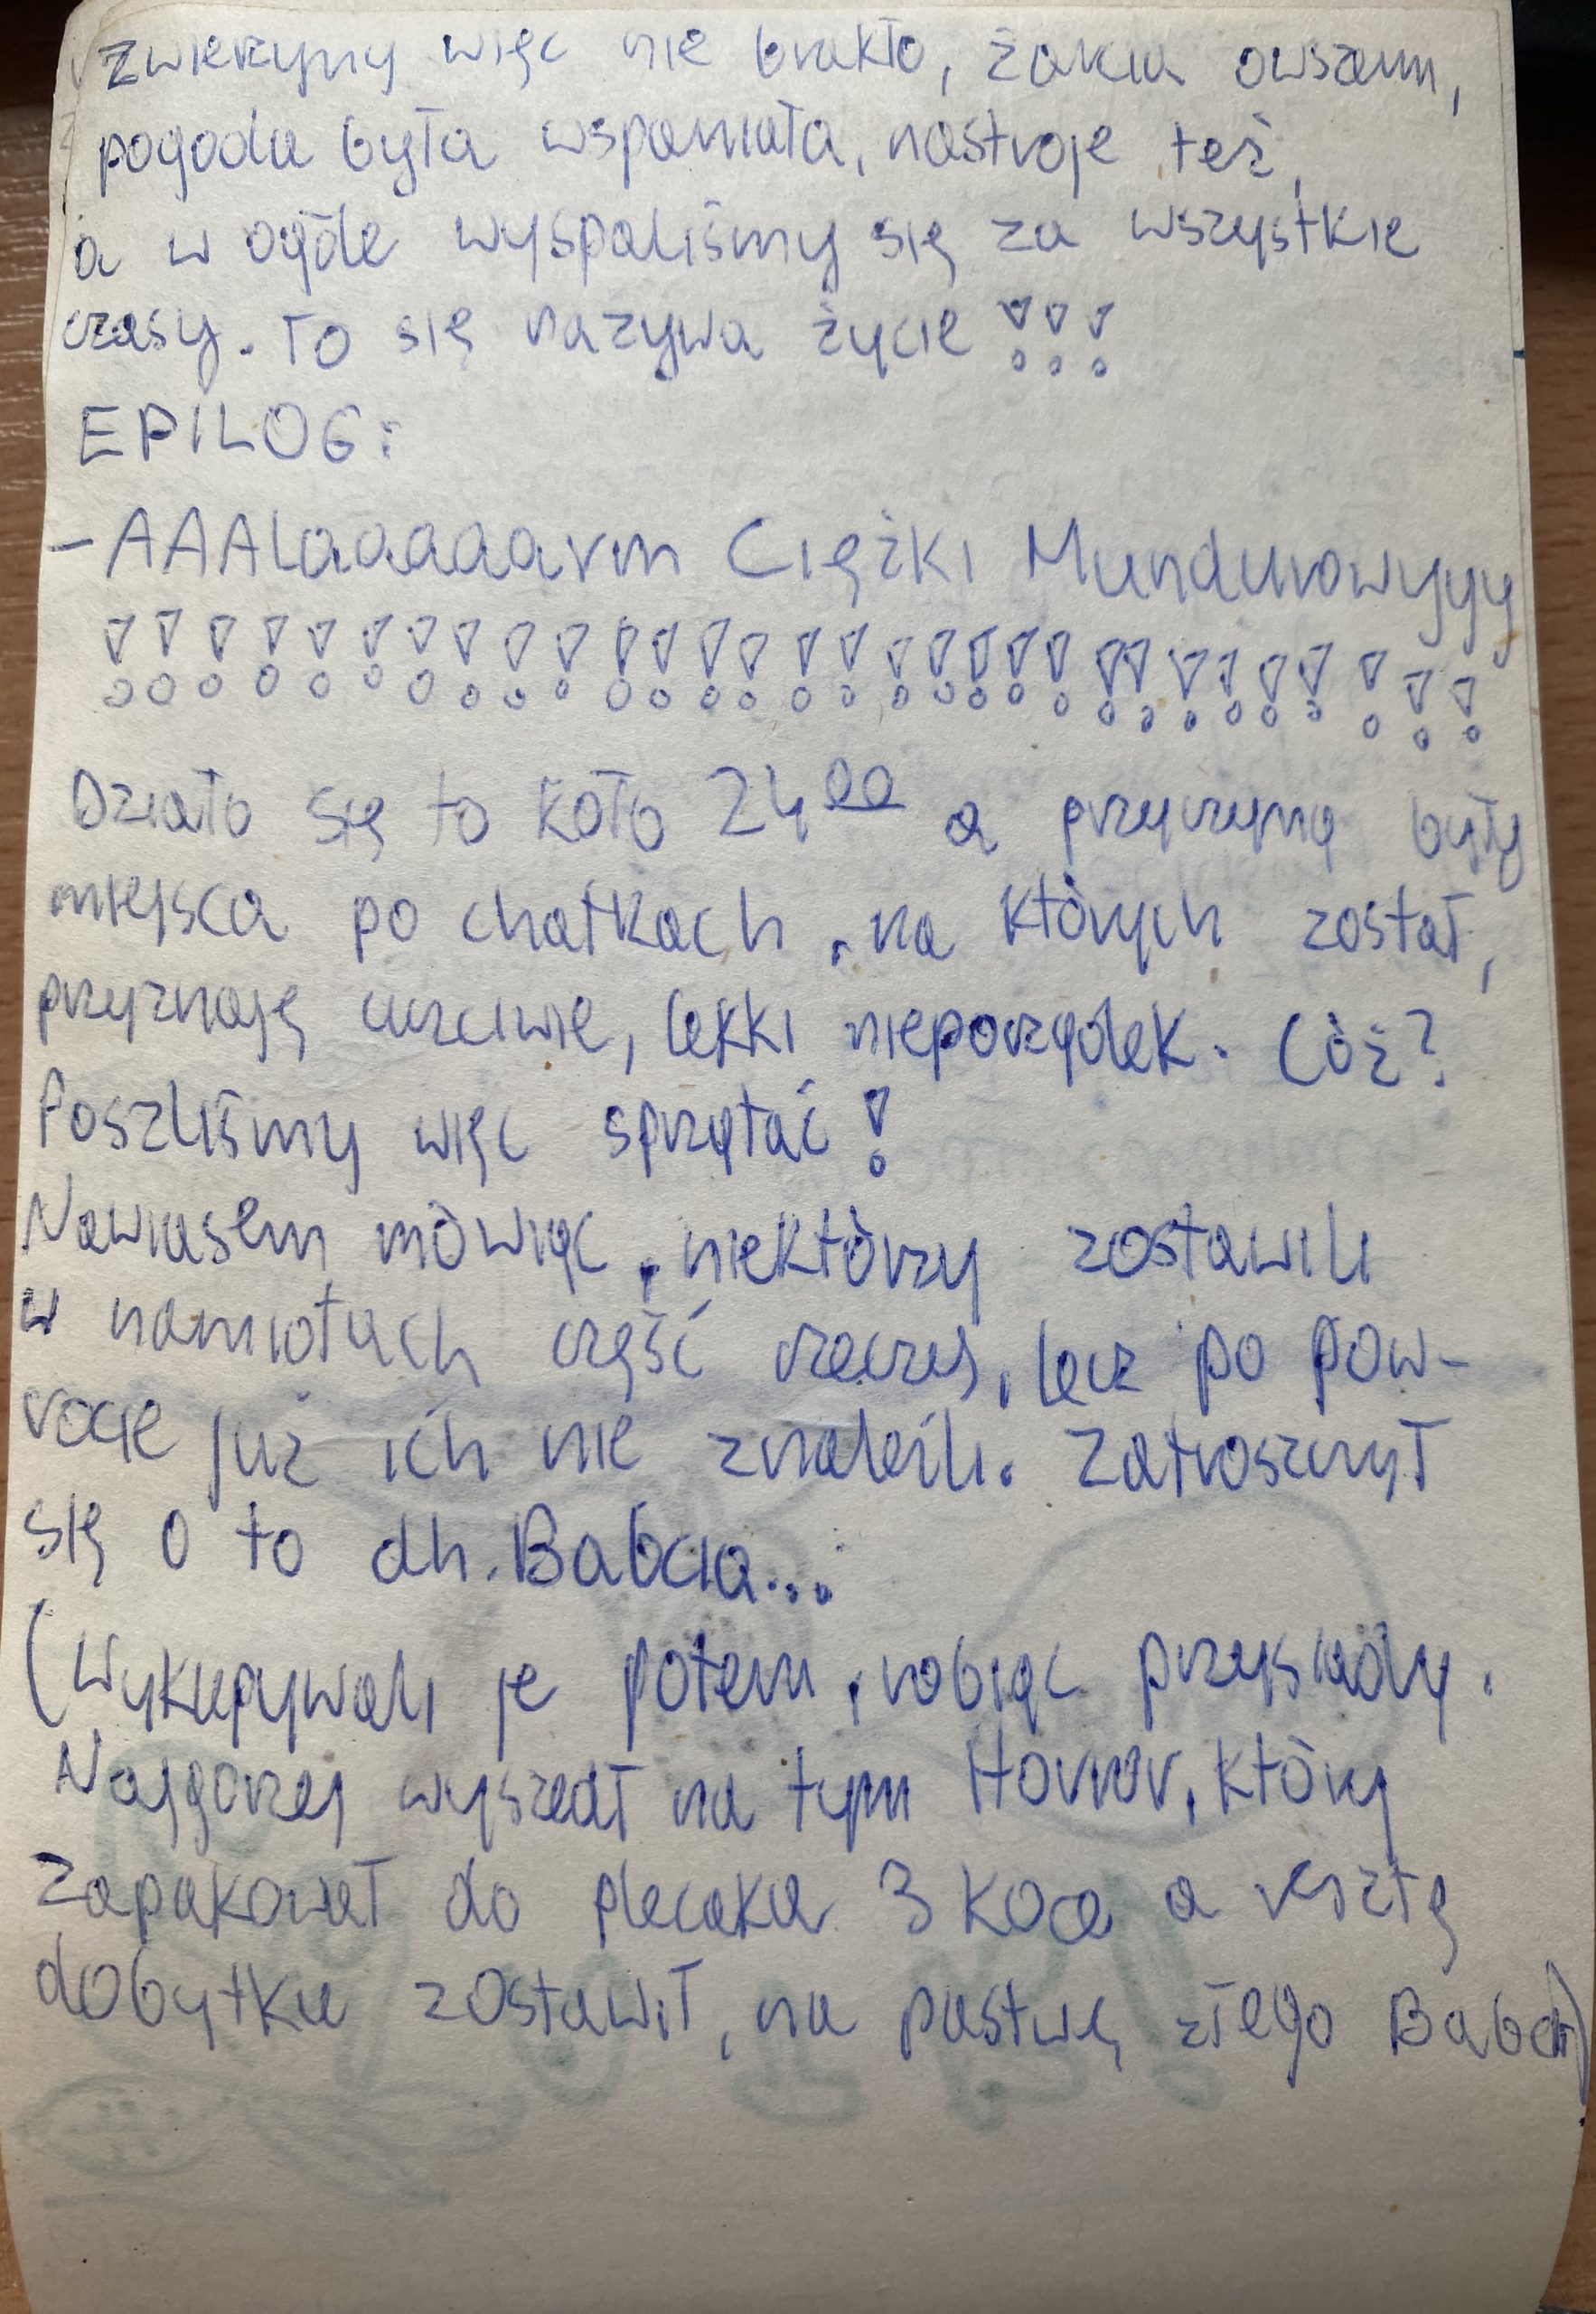 zwierzyny więc nie brakło, żarcia owszem,
pogoda była wspaniała, nastroje też,
a w ogóle wyspaliśmy się za wszystkie
czasy. To się nazywa życie !!!
EPILOG:
- AAALaaaaaarm Ciężki Mundurowyyy
!!!!!!!!!!!!!!!!!!!!!!!!!!!!!!
Działo się to koło 24⁰⁰ a przyczyną były
miejsca po chatkach, na których został,
przyznaję uczciwie, lekki nieporządek. Cóż?
Poszliśmy więc sprzątać!
Nawiasem mówiąc, niektórzy zostawili
w namiotach część rzeczy, lecz po pow-
rocie już ich nie znaleźli. Zatroszczył
się o to dh. Babcia...
(Wykupywali je potem, robiąc przysiady.
Najgorzej wyszedł na tym Horror, który
zapakował do plecaka 3 koce a resztę
dobytku zostawił, na pastwę złego Babci)